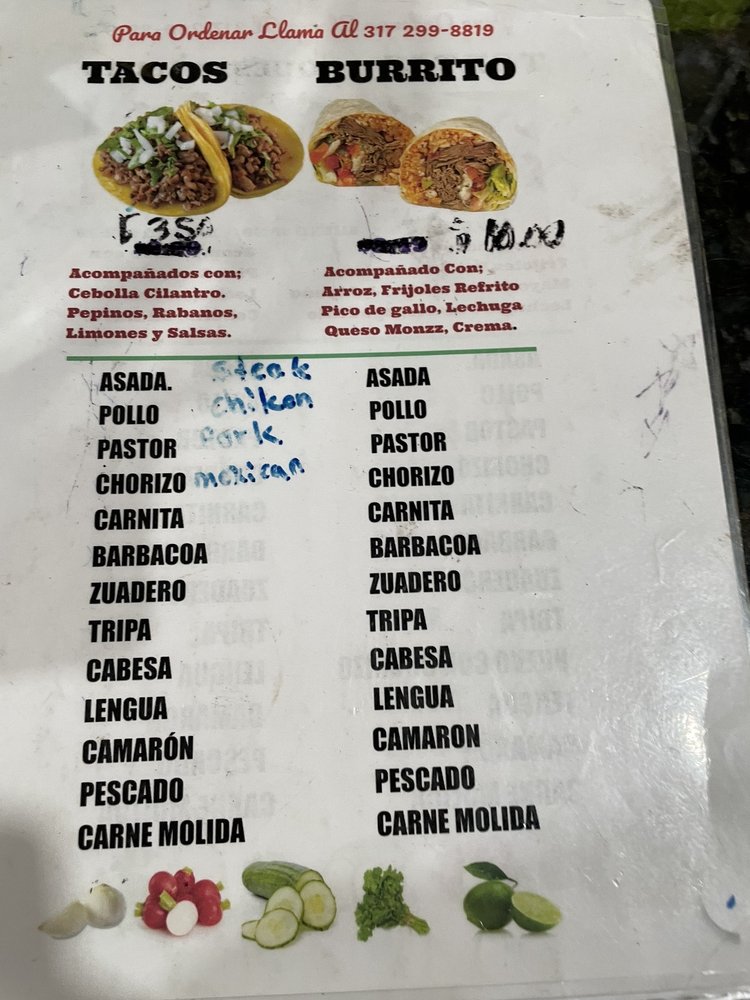 Para Ordenar Llama Al 317 299-8819
TACOS
$ 3.50
Acompañados con;
Cebolla Cilantro.
Pepinos, Rabanos,
Limones y Salsas.
BURRITO
$ 10.00
Acompañado Con;
Arroz, Frijoles Refrito
Pico de gallo, Lechuga
Queso Monzz, Crema.
ASADA. Steak
POLLO chikon
PASTOR Pork.
CHORIZO mexican
CARNITA
BARBACOA
ZUADERO
TRIPA
CABESA
LENGUA
CAMARÓN
PESCADO
CARNE MOLIDA
ASADA
POLLO
PASTOR
CHORIZO
CARNITA
BARBACOA
ZUADERO
TRIPA
CABESA
LENGUA
CAMARON
PESCADO
CARNE MOLIDA